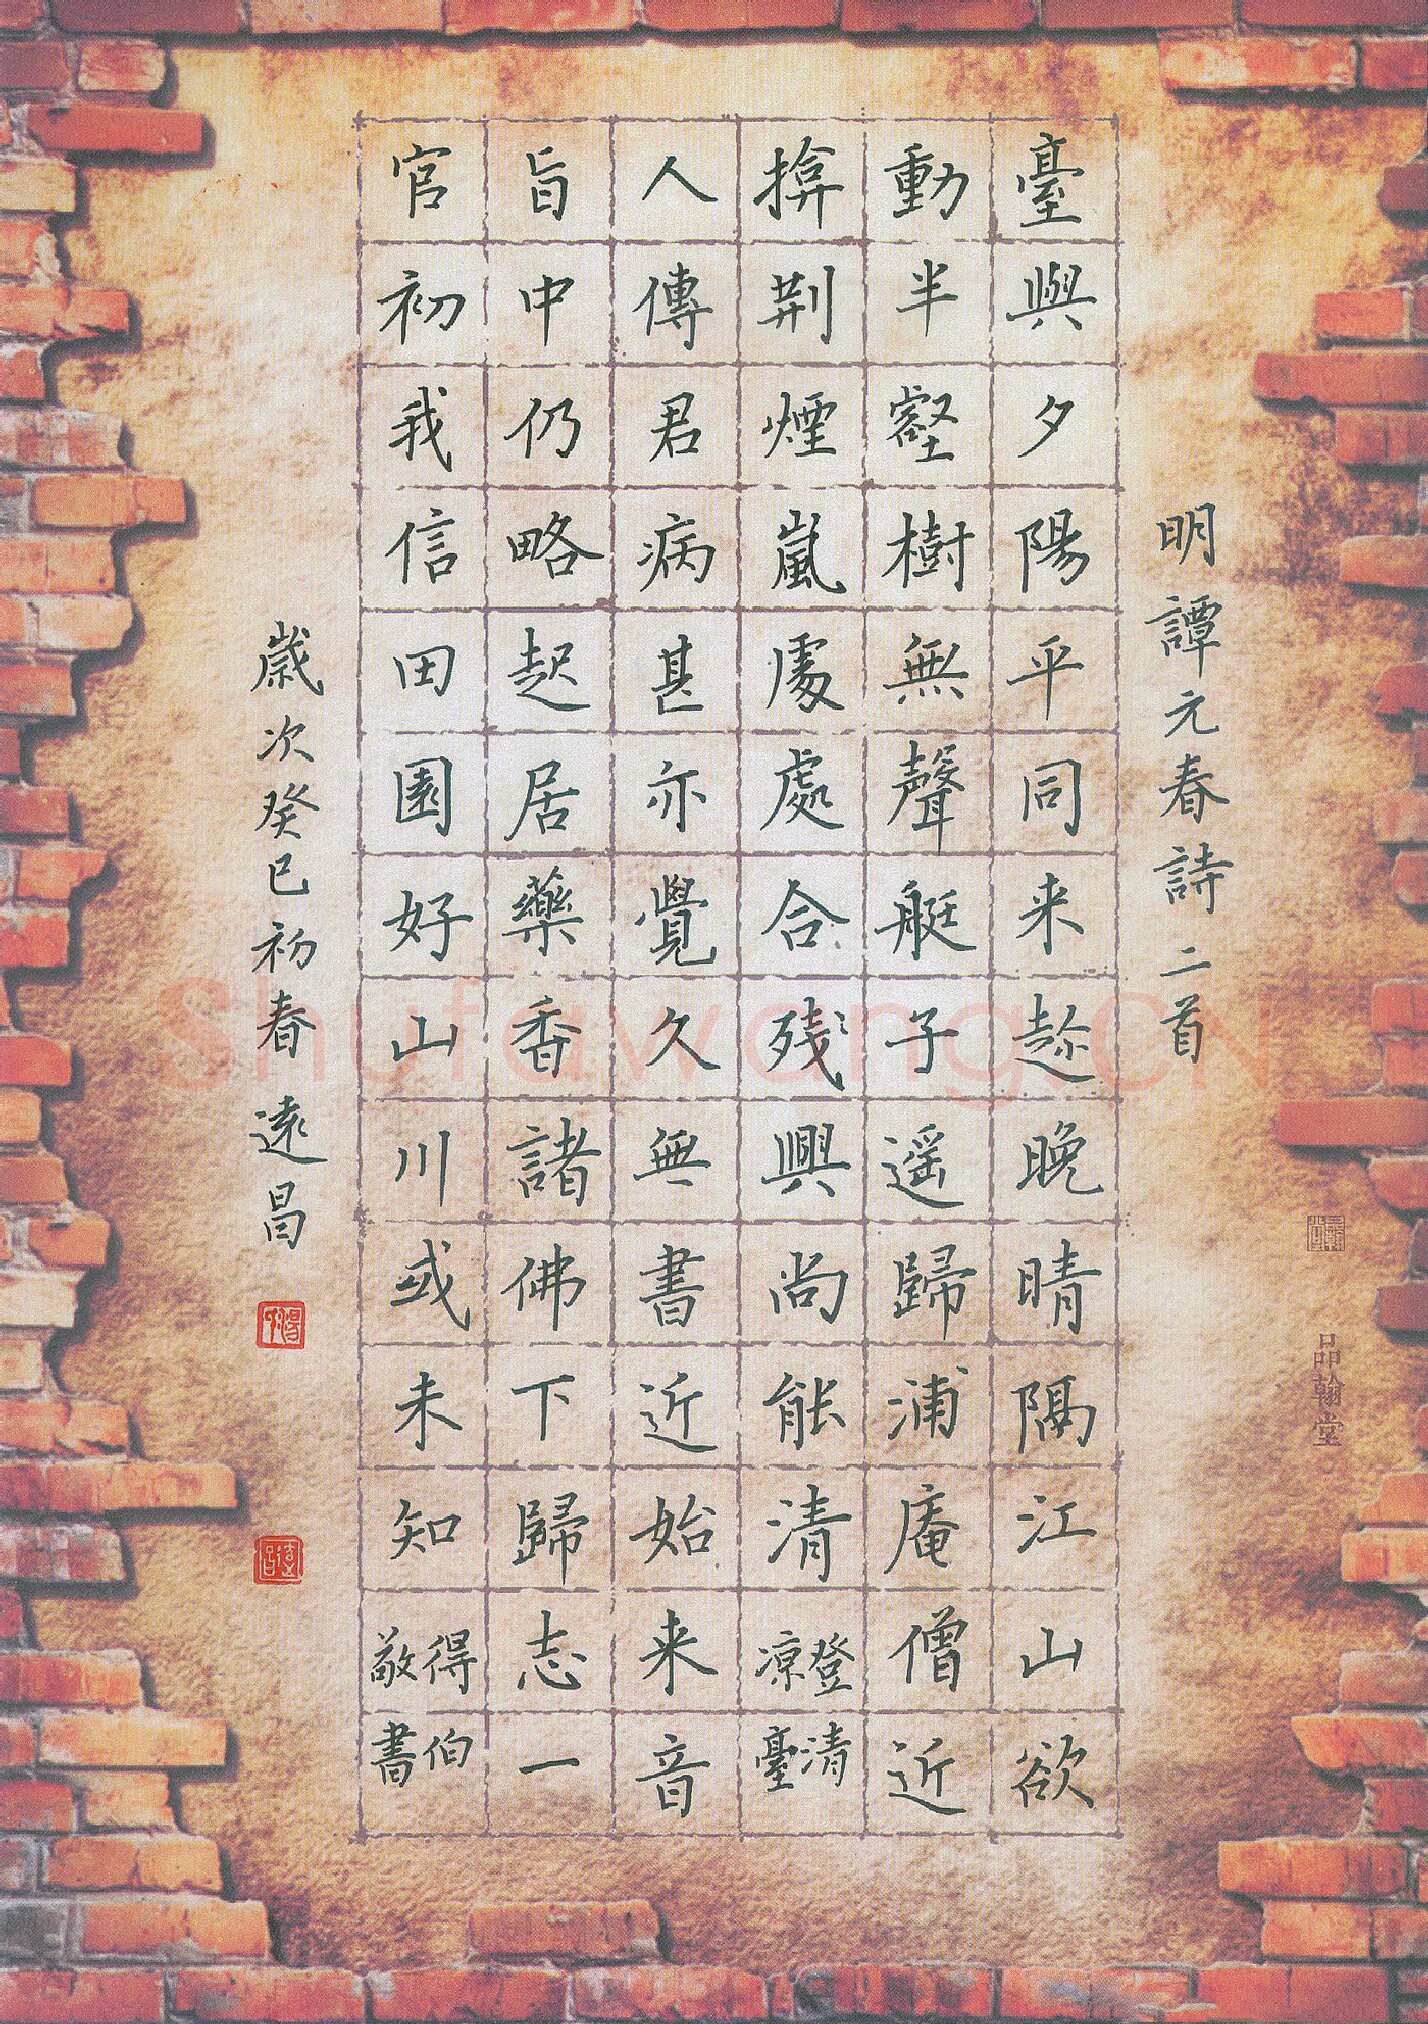 明譚元春詩二首
臺與夕陽平同来趂晚晴隔江山欲
動半壑樹無聲艇子遥歸浦庵僧近
揜荆煙嵐處處合残興尚能清登清凉臺
人傳君病甚亦覺久無書近始来音
旨中仍略起居藥香諸佛下歸志一
官初我信田園好山川或未知得伯敬書
歲次癸巳初春遠昌
品翰堂
Shufawang.CN